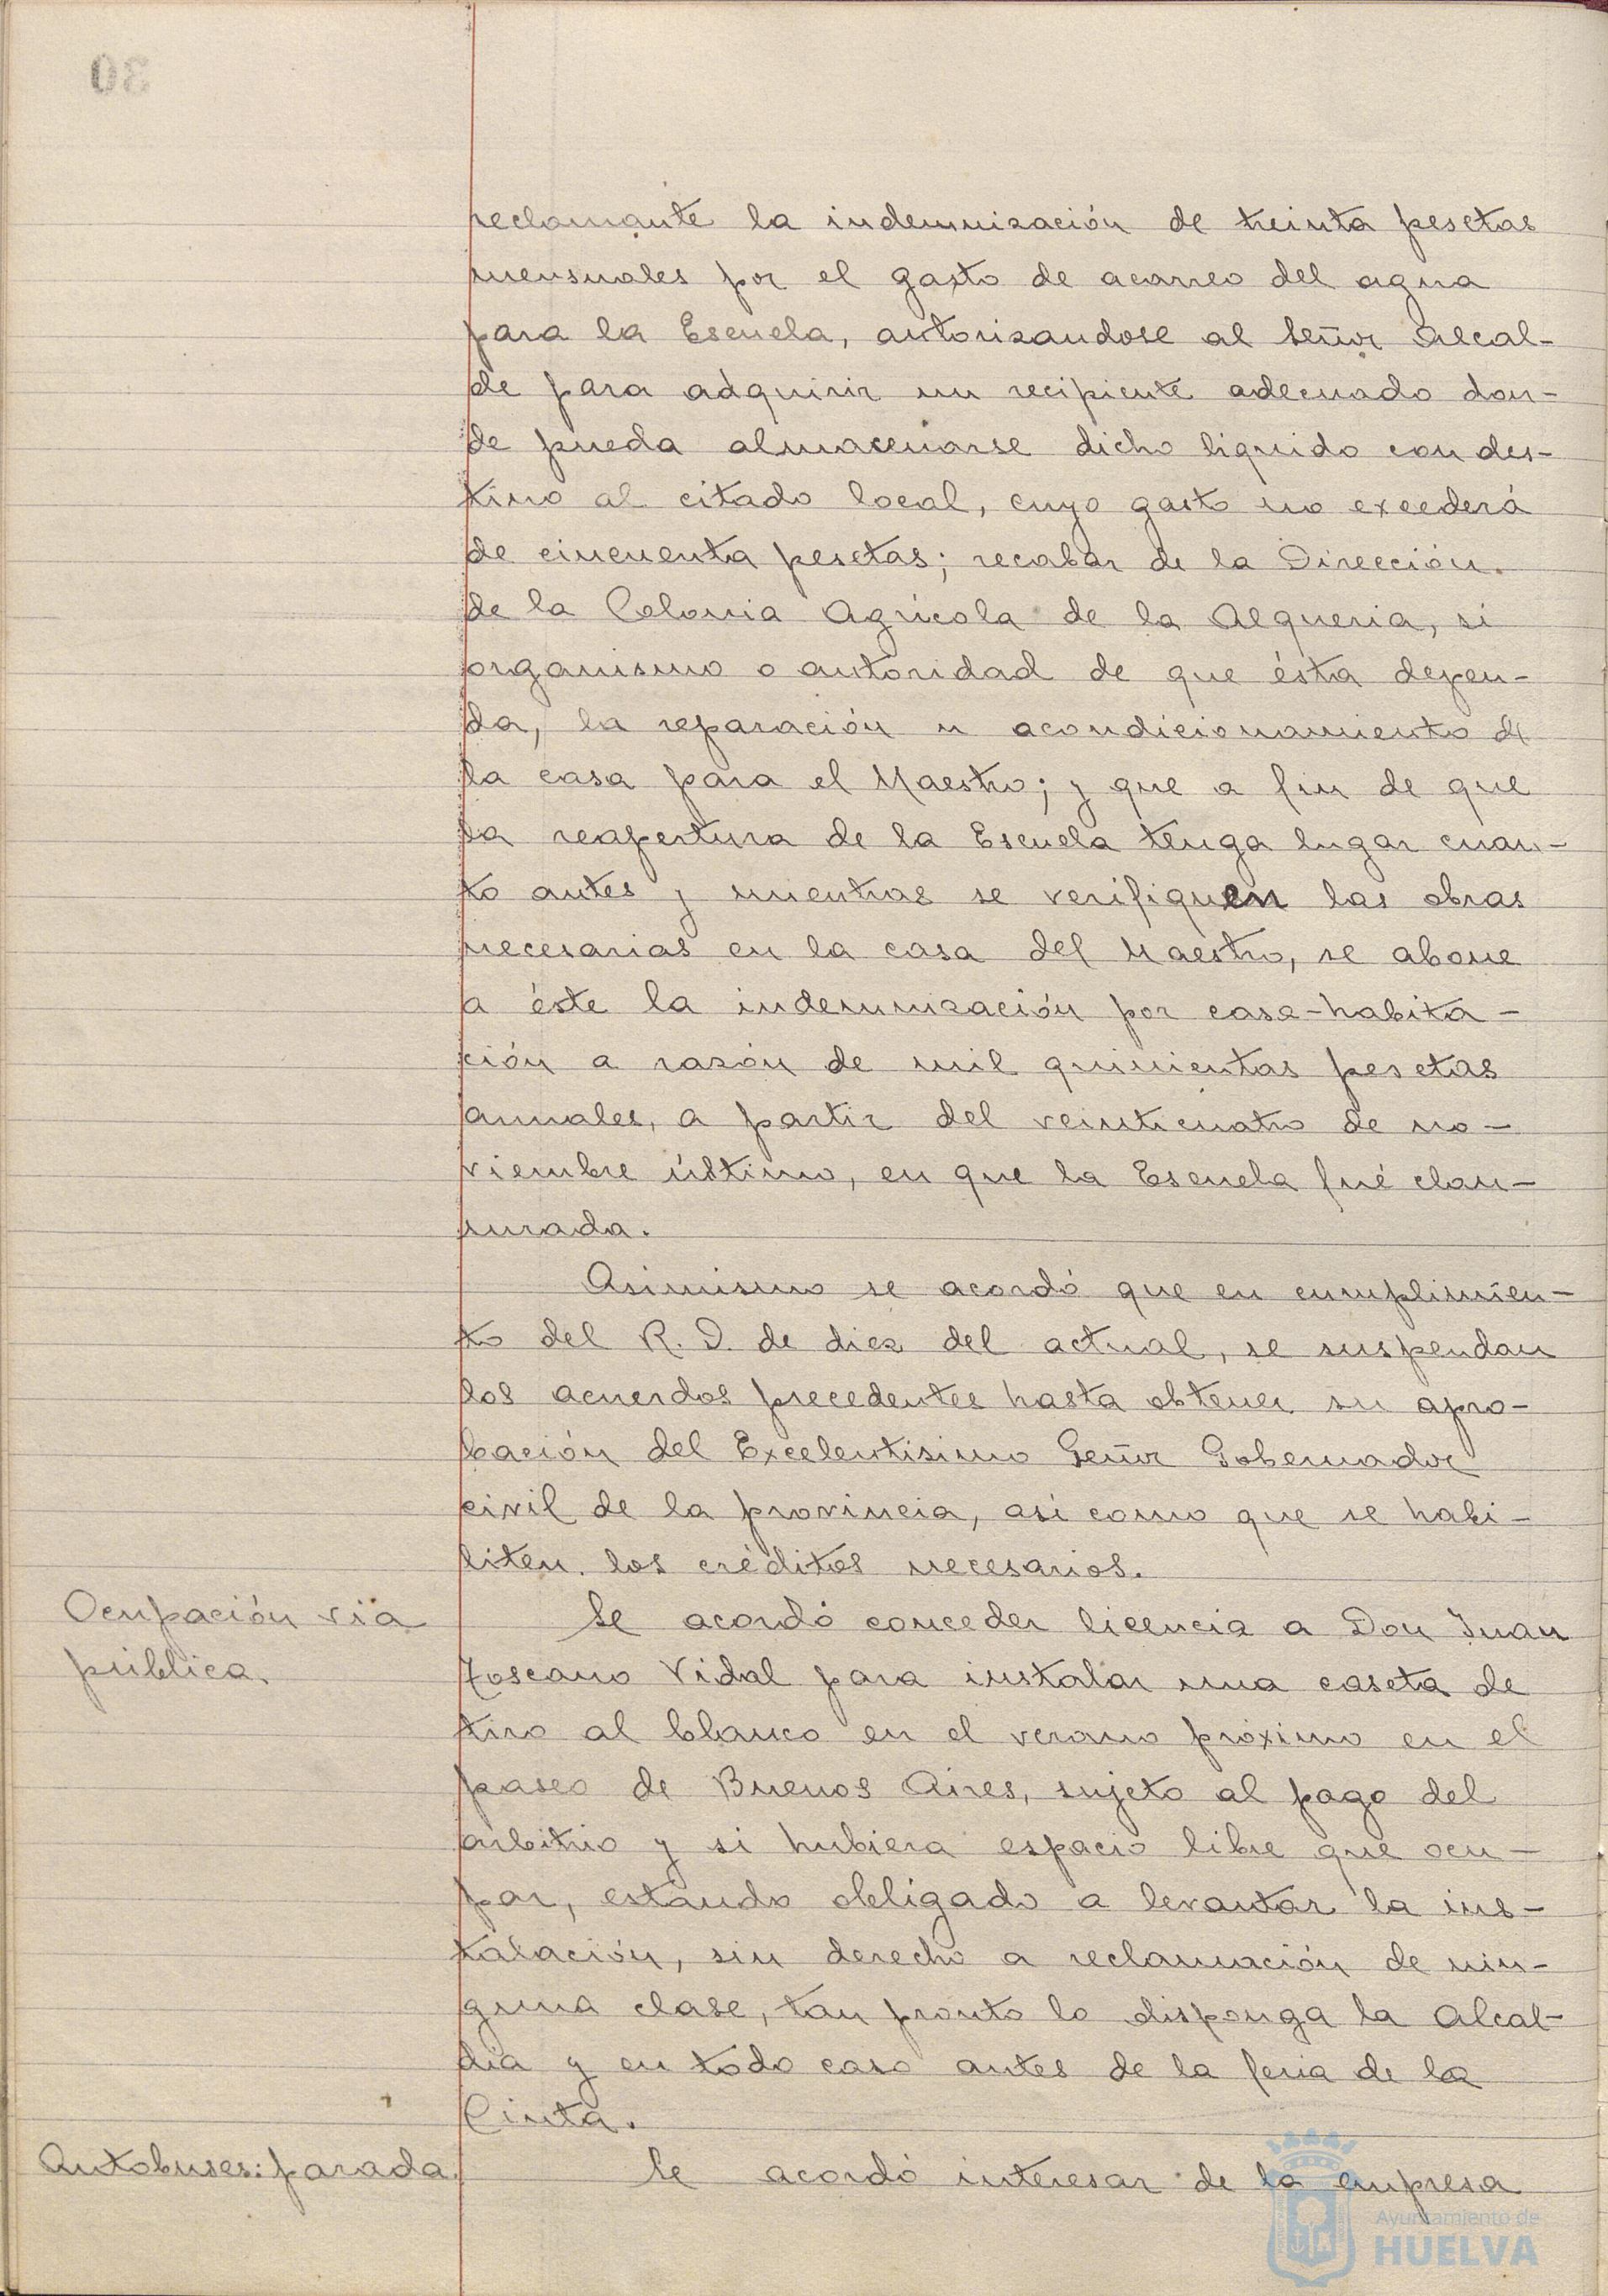 30
reclamante la indemnización de treinta pesetas
mensuales por el gasto de acarreo del agua
para la Escuela, autorizandose al Señor Alcal-
de para adquirir un recipiente adecuado don-
de pueda almacenarse dicho liquido con des-
tino al citado local, cuyo gasto no excederá
de cincuenta pesetas; recabar de la Dirección
de la Colonia Agrícola de la Alqueria, si
organismo o autoridad de que ésta depen-
da, la reparación u acondicionamiento de
la casa para el Maestro; y que a fin de que
la reapertura de la Escuela tenga lugar cuan-
to antes y mientras se verifiquen las obras
necesarias en la casa del Maestro, se abone
a éste la indemnización por casa-habita-
ción a razón de mil quinientas pesetas
anuales, a partir del veinticuatro de no-
viembre último, en que la Escuela fué clau-
surada.
Asimismo se acordó que en cumplimien-
to del R. D. de diez del actual, se suspendan
los acuerdos precedentes hasta obtener su apro-
bación del Excelentisimo Señor Gobernador
civil de la provincia, asi como que se habi-
liten los créditos necesarios.
Ocupación via
pública.
Se acordó conceder licencia a Don Juan
Toscano Vidal para instalar una caseta de
tiro al blanco en el verano próximo en el
paseo de Buenos Aires, sujeto al pago del
arbitrio y si hubiera espacio libre que ocu-
par, estando obligado a levantar la ins-
talación, sin derecho a reclamación de nin-
guna clase, tan pronto lo disponga la Alcal-
dia y en todo caso antes de la feria de la
Cinta.
Autobuses: parada.
Se acordó interesar de la empresa
Ayuntamiento de
HUELVA